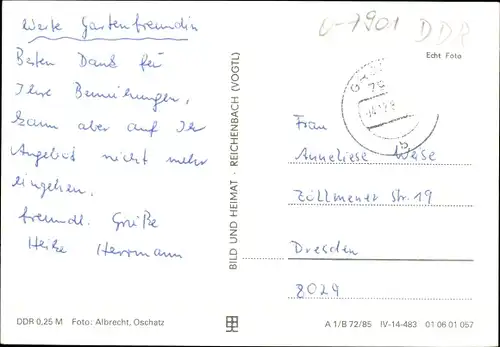 Werte Gartenfreundin
Besten Dank für
Ihre Bemühungen,
kann aber auf Ihr
Angebot nicht mehr
eingehen.
freundl. Grüße
Heike Herrmann
DDR 0,25 M Foto: Albrecht, Oschatz
BILD UND HEIMAT · REICHENBACH (VOGTL)
V-7901 DDR
Echt Foto
Frau
Anneliese Weise
Zöllmener Str. 19
Dresden
8029
A 1/B 72/85 IV-14-483 01 06 01 057